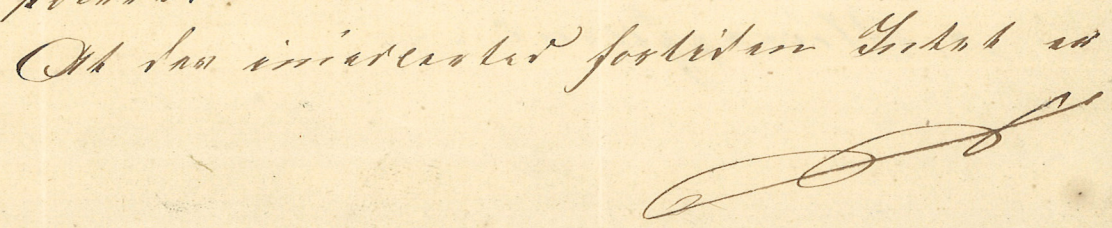 At der imidlertid fortiden Intet er